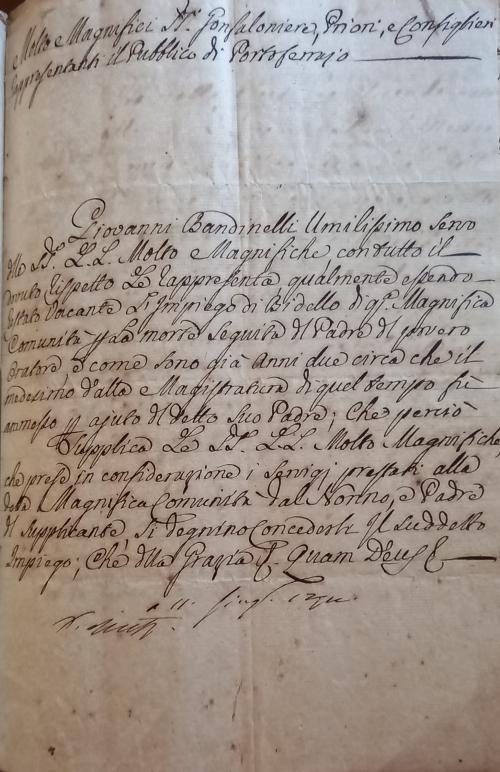 Molto e Magnifici SS.ri Gonfaloniere, Priori, e Consiglieri
Rappresentanti il Pubblico di Portoferrajo
Giovanni Bandinelli Umilissimo Servo
delle SS. LL. Molto e Magnifiche con tutto il
Dovuto Rispetto Le rappresenta qualmente essendo
restato Vacante L'Impiego di Bidello di q.ta Magnifica
Comunità p la morte seguita del Padre del povero
Oratore e come sono già Anni due circa che il
medesimo dalla e Magistratura di quel tempo fù
ammesso p ajuto del detto Suo Padre; Che perciò
Supplica Le SS. LL. Molto Magnifiche,
che prese in considerazione i servigj prestati alla
detta Magnifica Comunità dal Nonno, e Padre
del Supplicante, Si degnino Concederli Il Suddetto
Impiego; Che della Grazia &. Quam Deus &
a 11.